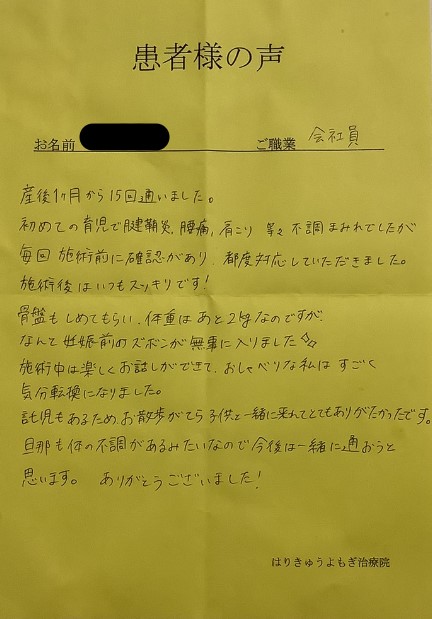 患者様の声
お名前 ご職業 会社員
産後1ヶ月から15回通いました。
初めての育児で腱鞘炎、腰痛、肩こり等々不調まみれでしたが
毎回施術前に確認があり、都度対応していただきました。
施術後はいつもスッキリです!
骨盤もしめてもらい、体重はあと2kgなのですが、
なんと妊娠前のズボンが無事に入りました✨
施術中は楽しくお話しができて、おしゃべりな私はすごく
気分転換になりました。
託児もあるため、お散歩がてら子供と一緒に来れてとてもありがたかったです。
旦那も体の不調があるみたいなので今後は一緒に通おうと
思います。 ありがとうございました!
はりきゅうよもぎ治療院